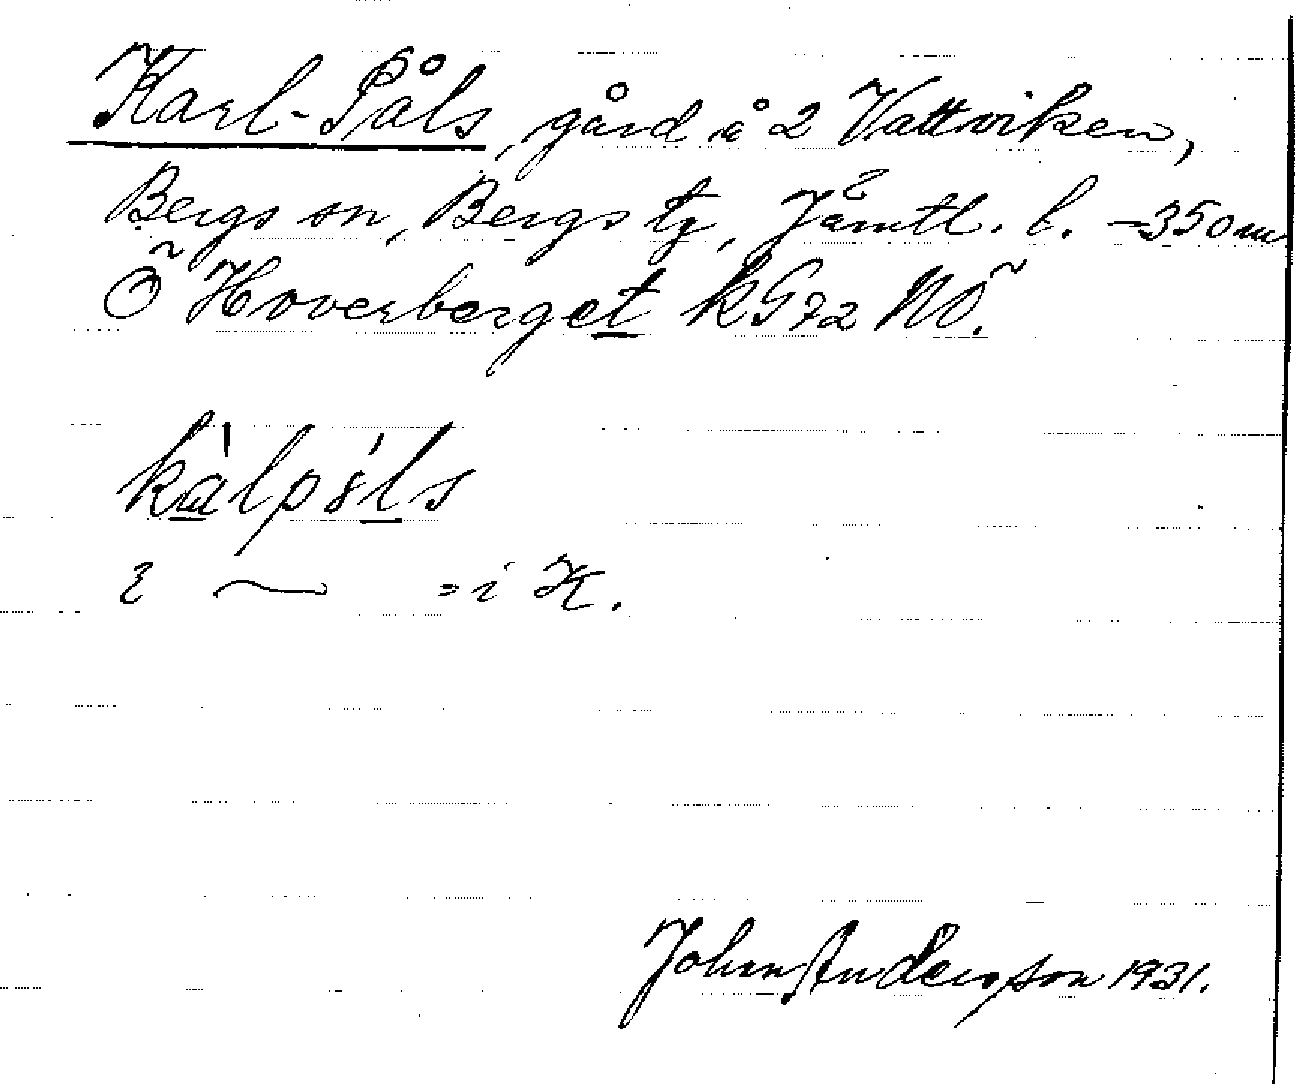 Karl-Påls, gård å 2 Vattviken,
Bergs sn, Bergs tg, Jämtl. l. -350 m
Ö Hoverberget k G 72 NÖ.
i ~ = i K.
John Anderson 1931.